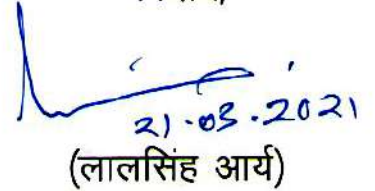 21.03.2021
(लालसिंह आर्य)